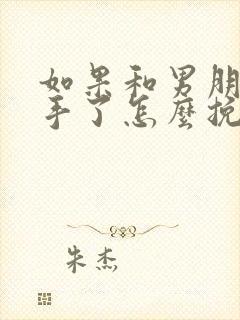 如果和男朋
手了怎麼挽
朱杰